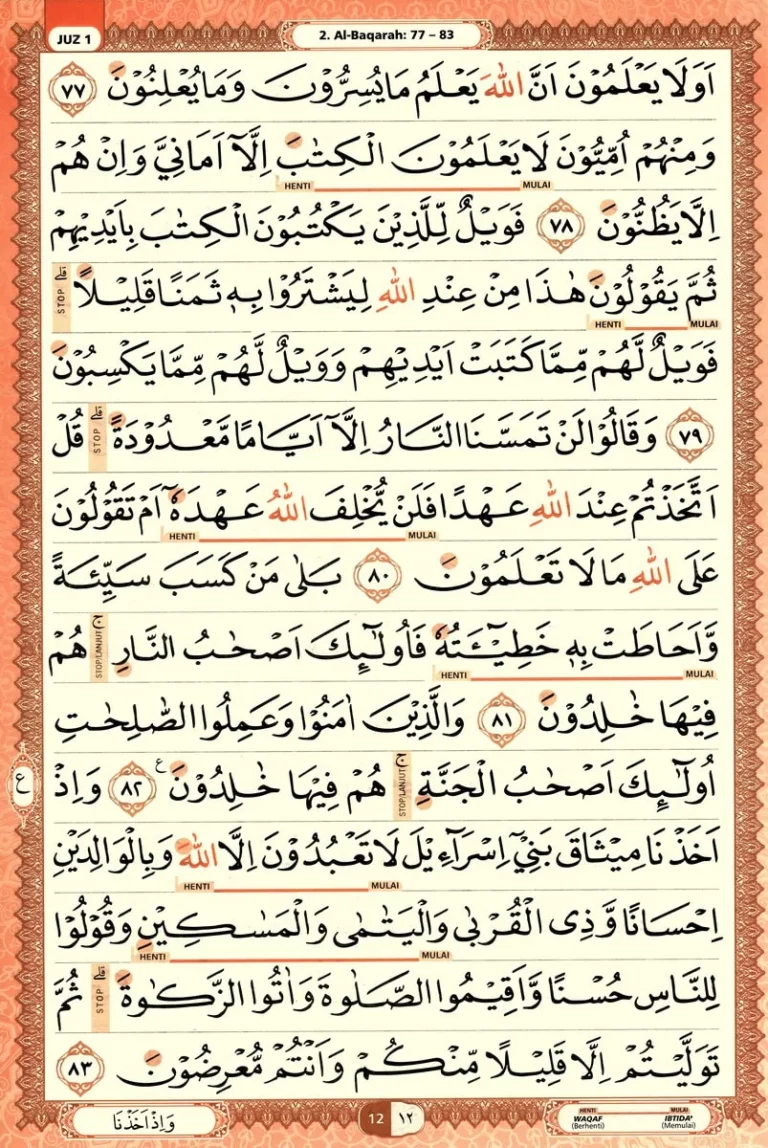 JUZ 1
2. Al-Baqarah: 77 – 83
اَوَلَا يَعْلَمُوْنَ اَنَّ اللّٰهَ يَعْلَمُ مَا يُسِرُّوْنَ وَمَا يُعْلِنُوْنَ ٧٧
وَمِنْهُمْ اُمِّيُّوْنَ لَا يَعْلَمُوْنَ الْكِتٰبَ اِلَّآ اَمَانِيَّ وَاِنْ هُمْ
HENTI MULAI
اِلَّا يَظُنُّوْنَ ٧٨ فَوَيْلٌ لِّلَّذِيْنَ يَكْتُبُوْنَ الْكِتٰبَ بِاَيْدِيْهِمْ
ثُمَّ يَقُوْلُوْنَ هٰذَا مِنْ عِنْدِ اللّٰهِ لِيَشْتَرُوْا بِهٖ ثَمَنًا قَلِيْلًا ۗ STOP
HENTI MULAI
فَوَيْلٌ لَّهُمْ مِّمَّا كَتَبَتْ اَيْدِيْهِمْ وَوَيْلٌ لَّهُمْ مِّمَّا يَكْسِبُوْنَ
٧٩ وَقَالُوْا لَنْ تَمَسَّنَا النَّارُ اِلَّآ اَيَّامًا مَّعْدُوْدَةً ۗ STOP قُلْ
اَتَّخَذْتُمْ عِنْدَ اللّٰهِ عَهْدًا فَلَنْ يُّخْلِفَ اللّٰهُ عَهْدَهٗٓ اَمْ تَقُوْلُوْنَ
HENTI MULAI
عَلَى اللّٰهِ مَا لَا تَعْلَمُوْنَ ٨٠ بَلٰى مَنْ كَسَبَ سَيِّئَةً
وَّاَحَاطَتْ بِهٖ خَطِيْۤـَٔتُهٗ فَاُولٰۤىِٕكَ اَصْحٰبُ النَّارِ ۚ STOP/LANJUT هُمْ
HENTI MULAI
فِيْهَا خٰلِدُوْنَ ٨١ وَالَّذِيْنَ اٰمَنُوْا وَعَمِلُوا الصّٰلِحٰتِ
اُولٰۤىِٕكَ اَصْحٰبُ الْجَنَّةِ ۚ STOP/LANJUT هُمْ فِيْهَا خٰلِدُوْنَ ࣖ ٨٢ وَاِذْ
ع
اَخَذْنَا مِيْثَاقَ بَنِيْٓ اِسْرَاۤءِيْلَ لَا تَعْبُدُوْنَ اِلَّا اللّٰهَ وَبِالْوَالِدَيْنِ
HENTI MULAI
اِحْسَانًا وَّذِى الْقُرْبٰى وَالْيَتٰمٰى وَالْمَسٰكِيْنِ وَقُوْلُوْا
HENTI MULAI
لِلنَّاسِ حُسْنًا وَّاَقِيْمُوا الصَّلٰوةَ وَاٰتُوا الزَّكٰوةَ ۗ STOP ثُمَّ
تَوَلَّيْتُمْ اِلَّا قَلِيْلًا مِّنْكُمْ وَاَنْتُمْ مُّعْرِضُوْنَ ٨٣
وَاِذْ اَخَذْنَا
12 ١٢
HENTI MULAI
WAQAF IBTIDA'
(Berhenti) (Memulai)